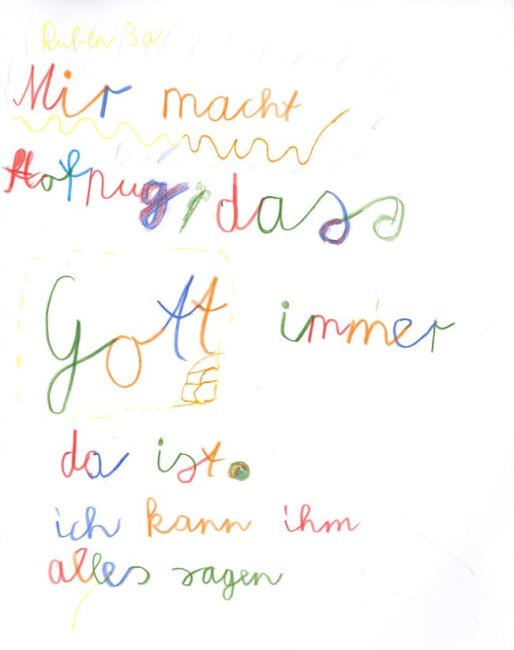 Ruben 3a
Mir macht
Hofnug, dass
Gott immer
da ist.
ich kann ihm
alles sagen